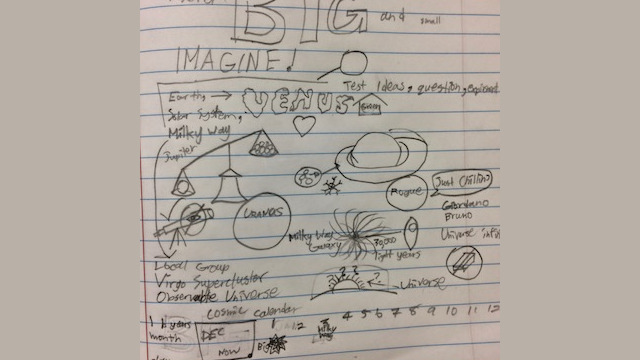 BIG and small
IMAGINE!
Test Ideas, question, experiment
Earth, → VENUS Green
Solar System,
Milky Way
Jupiter
URANUS
Rogue
Just Chilling
Giordano
Bruno
Milky Way
Galaxy
30,000
light years
Universe
Local Group
Virgo Supercluster
Observable Universe
Universe
cosmic calendar
years
month
DEC
NOW
Big
1 2 Milky 4 5 6 7 8 9 10 11 12